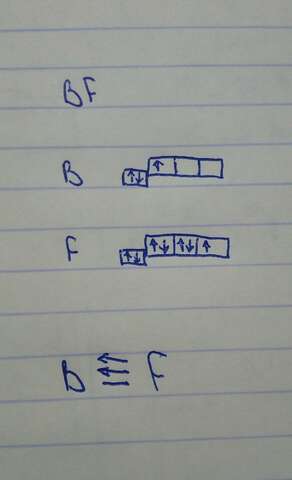 BF
B ↑↓ ↑
F ↑↓ ↑↓ ↑↓ ↑
B ⇇ F